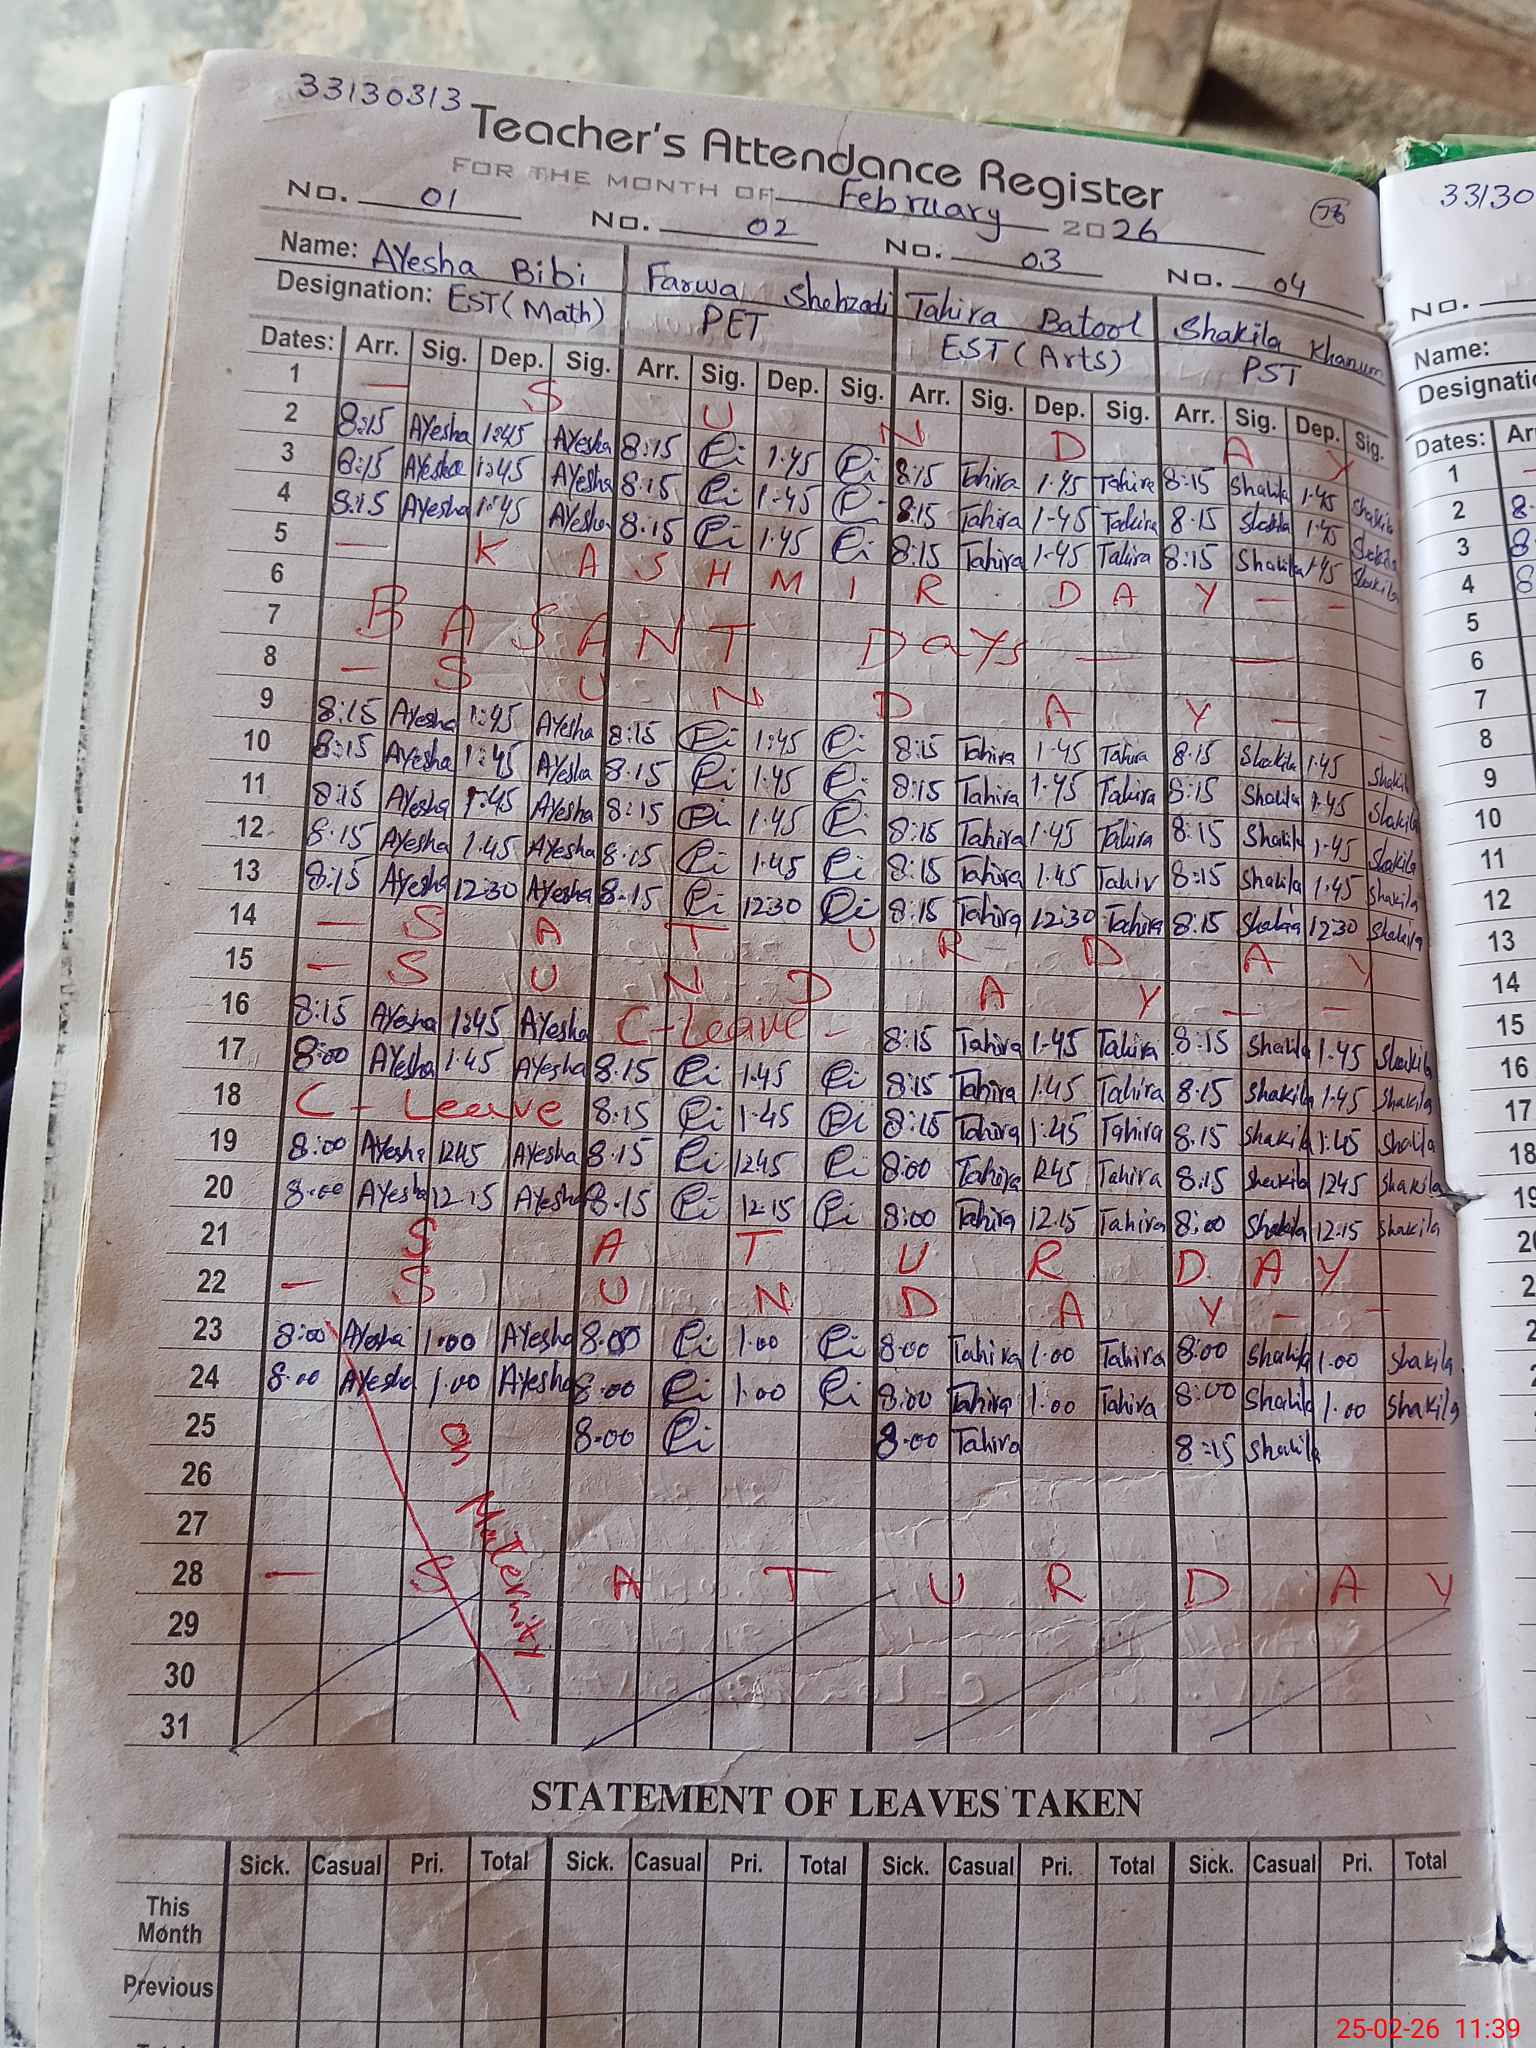 33130313
Teacher's Attendance Register
FOR THE MONTH OF February 2026
No. 01 No. 02 No. 03 No. 04
Name: AYesha Bibi Farwa Shehzadi Tahira Batool Shakila Khanum
Designation: EST (Math) PET EST (Arts) PST
Dates: Arr. Sig. Dep. Sig. Arr. Sig. Dep. Sig. Arr. Sig. Dep. Sig. Arr. Sig. Dep. Sig.
1 — S U N D A Y
2 8:15 AYesha 1:45 AYesha 8:15 1.45 8:15 Tahira 1.45 Tahira 8:15 Shakila 1.45 Shakila
3 8:15 AYesha 1:45 AYesha 8:15 1.45 8:15 Tahira 1.45 Tahira 8:15 Shakila 1.45 Shakila
4 8:15 AYesha 1:45 AYesha 8:15 1.45 8:15 Tahira 1.45 Tahira 8:15 Shakila 1.45 Shakila
5 — K A S H M I R D A Y — —
6
7 B A S A N T Days — —
8 — S U N D A Y — —
9 8:15 AYesha 1:45 AYesha 8:15 1:45 8:15 Tahira 1.45 Tahira 8:15 Shakila 1.45 Shakila
10 8:15 AYesha 1:45 AYesha 8.15 1.45 8:15 Tahira 1.45 Tahira 8:15 Shakila 1.45 Shakila
11 8:15 AYesha 1:45 AYesha 8:15 1.45 8:15 Tahira 1.45 Tahira 8:15 Shakila 1.45 Shakila
12 8.15 AYesha 1.45 AYesha 8.15 1.45 8:15 Tahira 1.45 8:15 Shakila 1.45 Shakila
13 8:15 AYesha 12:30 AYesha 8.15 12:30 8:15 Tahira 12:30 Tahira 8:15 Shakila 12:30 Shakila
14 — S A T U R D A Y
15 — S U N D A Y — —
16 8:15 AYesha 1:45 AYesha C-Leave - 8:15 Tahira 1.45 Tahira 8:15 Shakila 1.45 Shakila
17 8:00 AYesha 1.45 AYesha 8.15 1.45 8:15 Tahira 1.45 Tahira 8.15 Shakila 1.45 Shakila
18 C - Leave 8:15 1.45 8:15 Tahira 1:45 Tahira 8.15 Shakila 1:45 Shakila
19 8:00 AYesha 1245 AYesha 8.15 1245 8:00 Tahira 1245 Tahira 8:15 Shakila 1245 Shakila
20 8:00 AYesha 12.15 AYesha 8.15 12.15 8:00 Tahira 12.15 Tahira 8:00 Shakila 12.15 Shakila
21 S A T U R D A Y
22 — S U N D A Y - -
23 8:00 AYesha 1.00 AYesha 8.00 1.00 8.00 Tahira 1.00 Tahira 8:00 Shakila 1.00 Shakila
24 8.00 AYesha 1.00 AYesha 8.00 1.00 8:00 Tahira 1.00 Tahira 8:00 Shakila 1.00 Shakila
25 8.00 8.00 Tahira 8:15 Shakila
26
27 Maternity
28 — S A T U R D A Y
29
30
31
STATEMENT OF LEAVES TAKEN
Sick. Casual Pri. Total Sick. Casual Pri. Total Sick. Casual Pri. Total Sick. Casual Pri. Total
This
Month
Previous
33130
No.
Name:
Designati
Dates: Ar
1
2 8
3 8
4 8
5
6
7
8
9
10
11
12
13
14
15
16
17
18
25-02-26 11:39